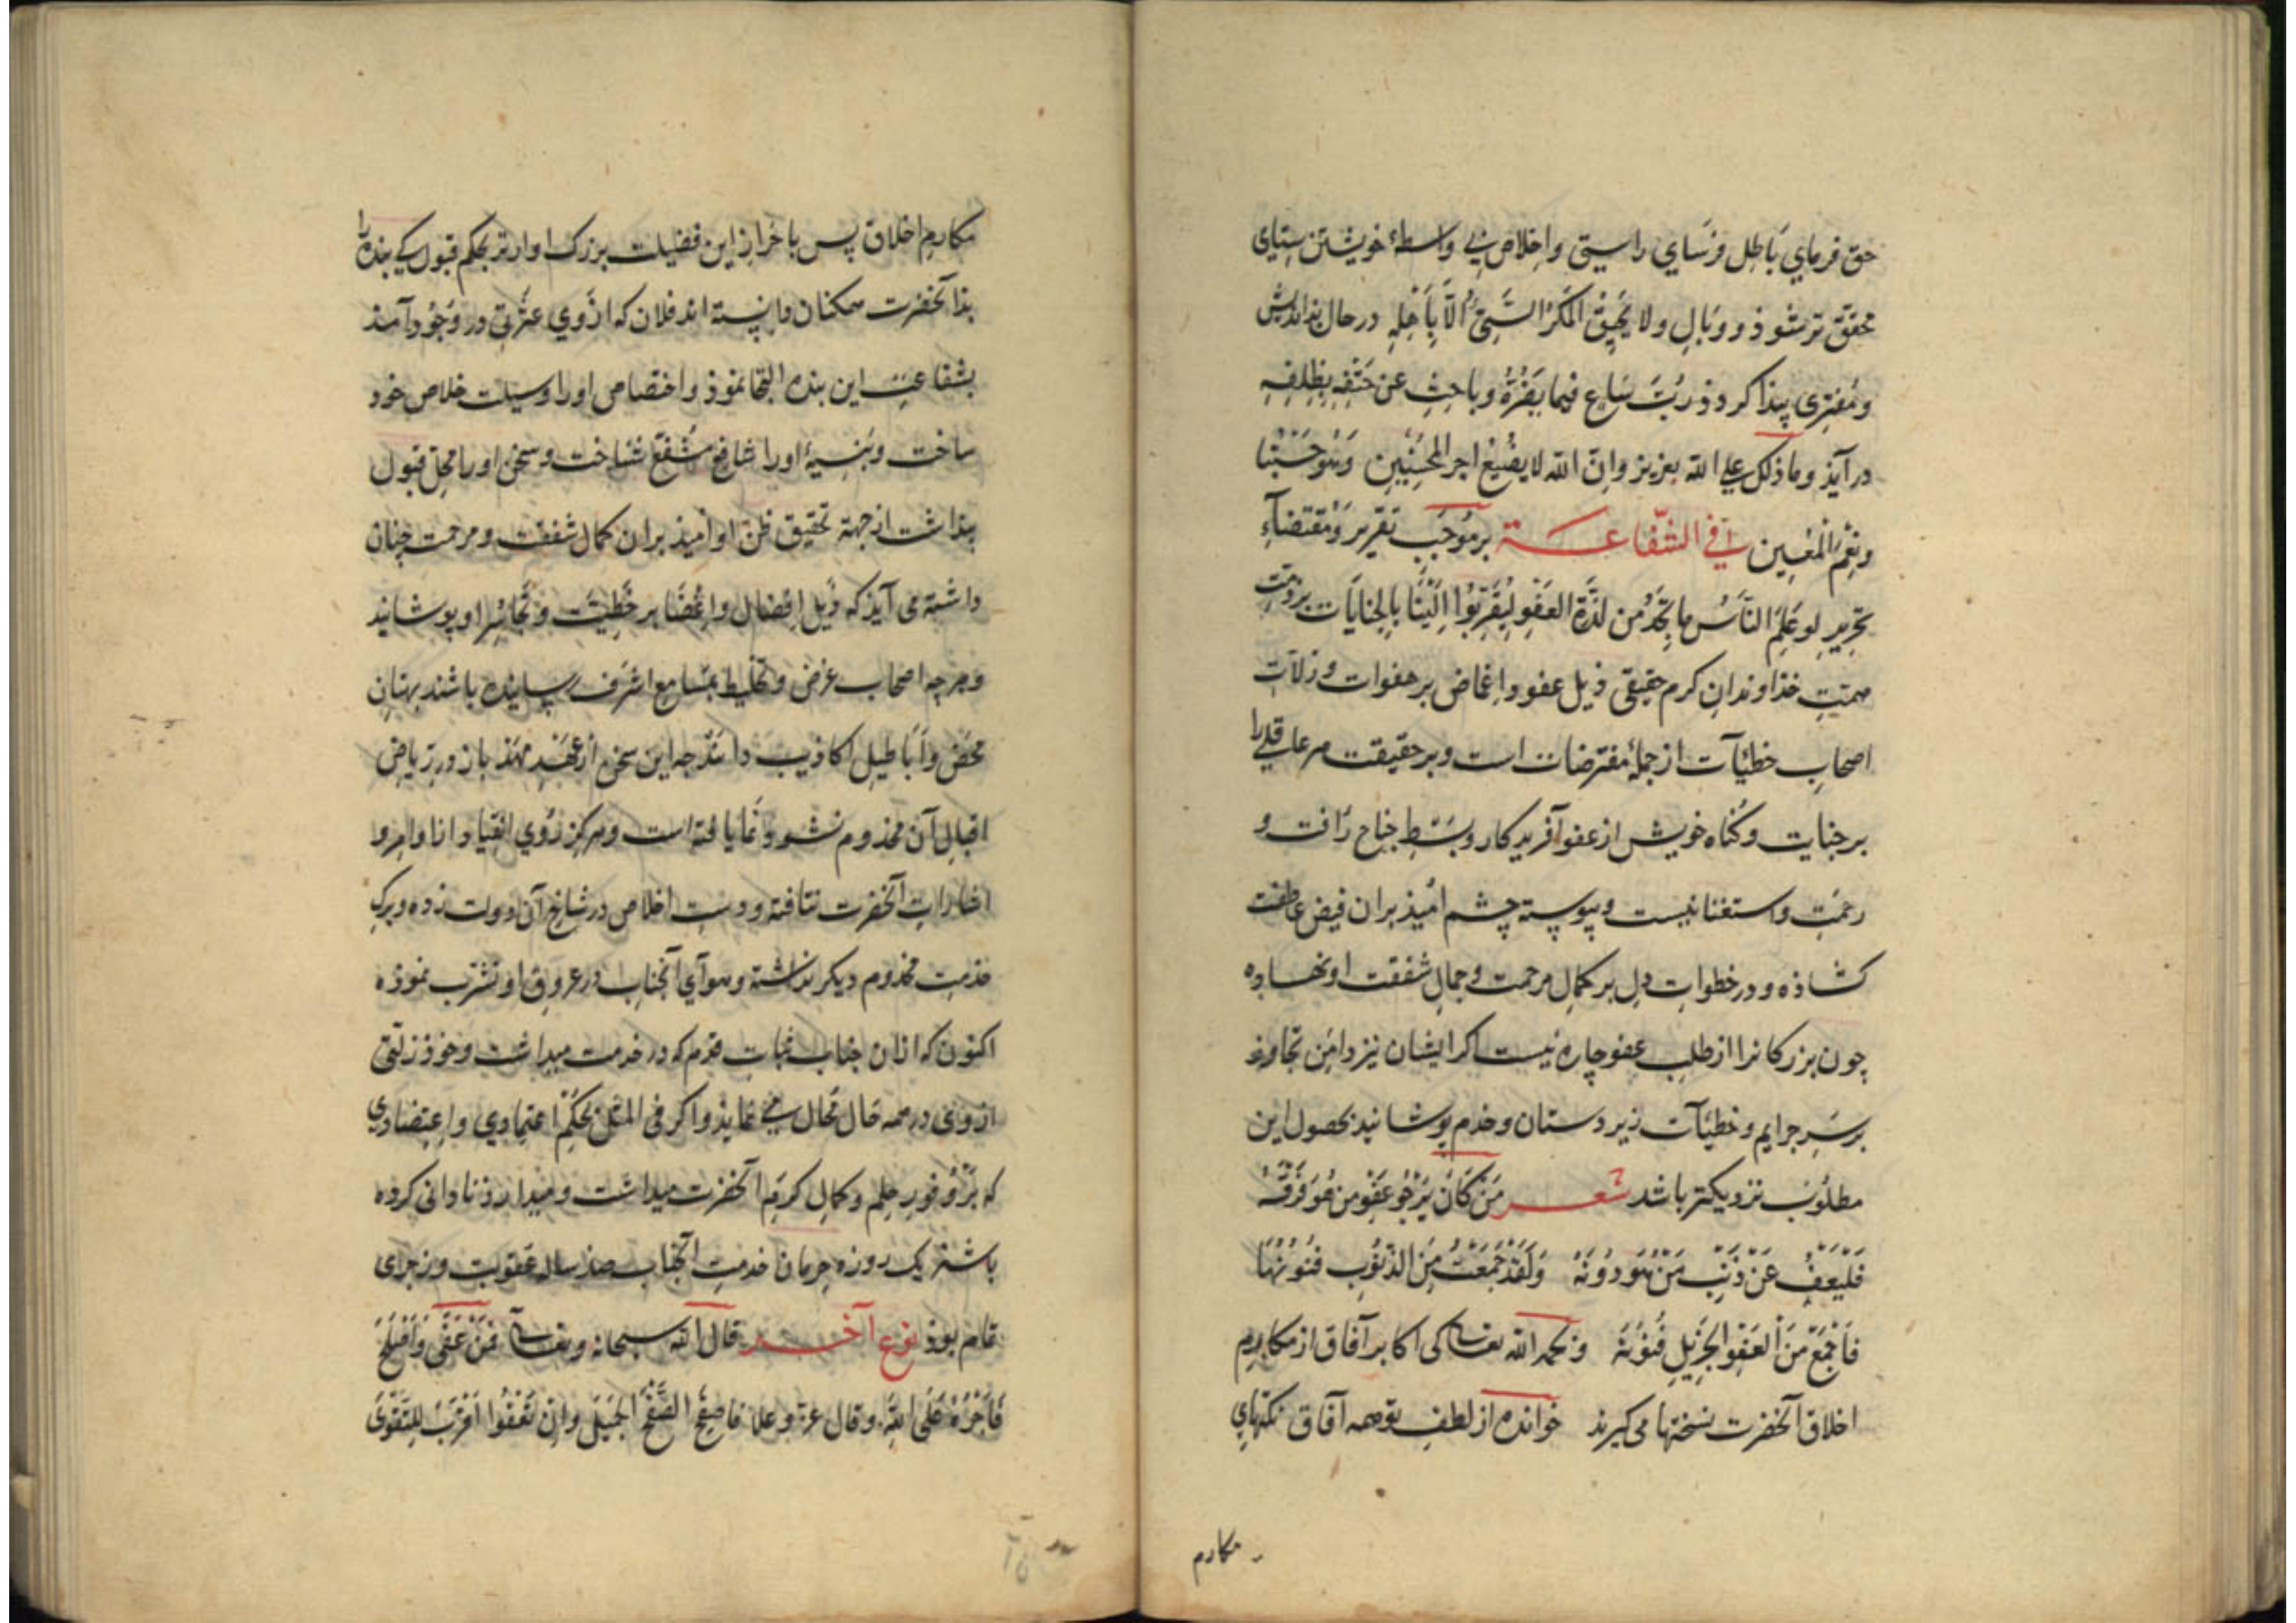 حق فرمای باطل فرسای راستی و اخلاص بی واسطهٔ خویشتن ستای
محقق تر شوذ و وبال ولا یحیق المکر السیئ الا باهله در حال بذاندیش
و مفتری پیذا کردذ رب ساع فیما یضره و باحث عن حتفه بظلفه
در آیذ وما ذلک علی الله بعزیز وان الله لا یضیع اجر المحسنین وهو حسبنا
ونعم المعین فی الشفاعة بر موجب تقریر و مقتضاء
تحریر لو علم الناس ما نجد من لذة العفو لیقربوا الینا بالجنایات بر ذمت
همت خذاوندان کرم حقیقی ذیل عفو و اغماض بر هفوات و زلات
اصحاب خطیئات از جملهٔ مفترضات است و بر حقیقت هر عاقلی را
بر جنایت و کناه خویش از عفو آفریدکار و بسط جناح رافت و
رحمت و استغنا نیست و پیوسته چشم امیذ بران فیض عاطفت
کشاذه و در خطوات دل بر کمال مرحمت و جمال شفقت او نهاده
چون بزرکانرا از طلب عفو چاره نیست اکر ایشان نیز دامن تجاوز
بر سر جرایم و خطیئات زیردستان و خدم پوشانید بحصول این
مطلوب نزدیکتر باشد شعر من کان یرجو عفو من هو فوقه
فلیعف عن ذنب من هو دونه ولقد جمعت من الذنوب فنونها
فاجمع من العفو الجزیل فنونه و بحمد الله تعالی کی اکابر آفاق از مکارم
اخلاق آنحضرت نسختها می کیرند خوانده از لطف تو همه آفاق نکتهای
مکارم
مکارم اخلاق پس باحراز این فضیلت بزرک اوارتر بحکم قبول کی بنده را
بذآنحضرت همکنان دانسته اند فلان که از وی عثرتی در وجوذ آمذ
بشفاعت این بنده التجا نموذ و اختصاص او را وسیلت خلاص خود
ساخت و بنسبهٔ او را شافع مشفع شناخت و سخن او را محل قبول
پنداشت از جهة تحقیق ظن او امیذ بران کمال شفقت و مرحمت چنان
داشته می آیذ که ذیل افضال و اغضا بر خطیئت و او پوشانید
و هر چه اصحاب غرض و تخلیط بمسامع اشرف رسانیده باشند بهتان
محض و اباطیل اکاذیب داند چه این سخن از عهد مهذ باز در ریاض
اقبال آن مخذوم نشو و نما یافته است و هرکز روی انقیاد از اوامر و
اشارات آنحضرت نتافته و دست اخلاص در شاخ آن دولت زده و برک
خذمت مخذوم دیکر نذاشته و هوآی آنجناب در عروق او تشرب نموذه
اکنون که ازان جناب ثبات قدم که در خدمت میداشت و خوذ زلتی
از وی در همه حال محال می نمایذ و اکر فی المثل بحکم اعتمادی و اعتضادی
که بر وفور حلم و کمال کرم آنحضرت میداشت و میدارذ نادانی کرده
باشذ یک روزه حرمان خدمت آنجناب صذ ساله عقوبت و زجری
تمام بوذ نوع آخر قال الله سبحانه و تعالی فمن عفی واصلح
فاجره علی الله وقال عز وعلا فاصفح الصفح الجمیل وان تعفوا اقرب للتقوی